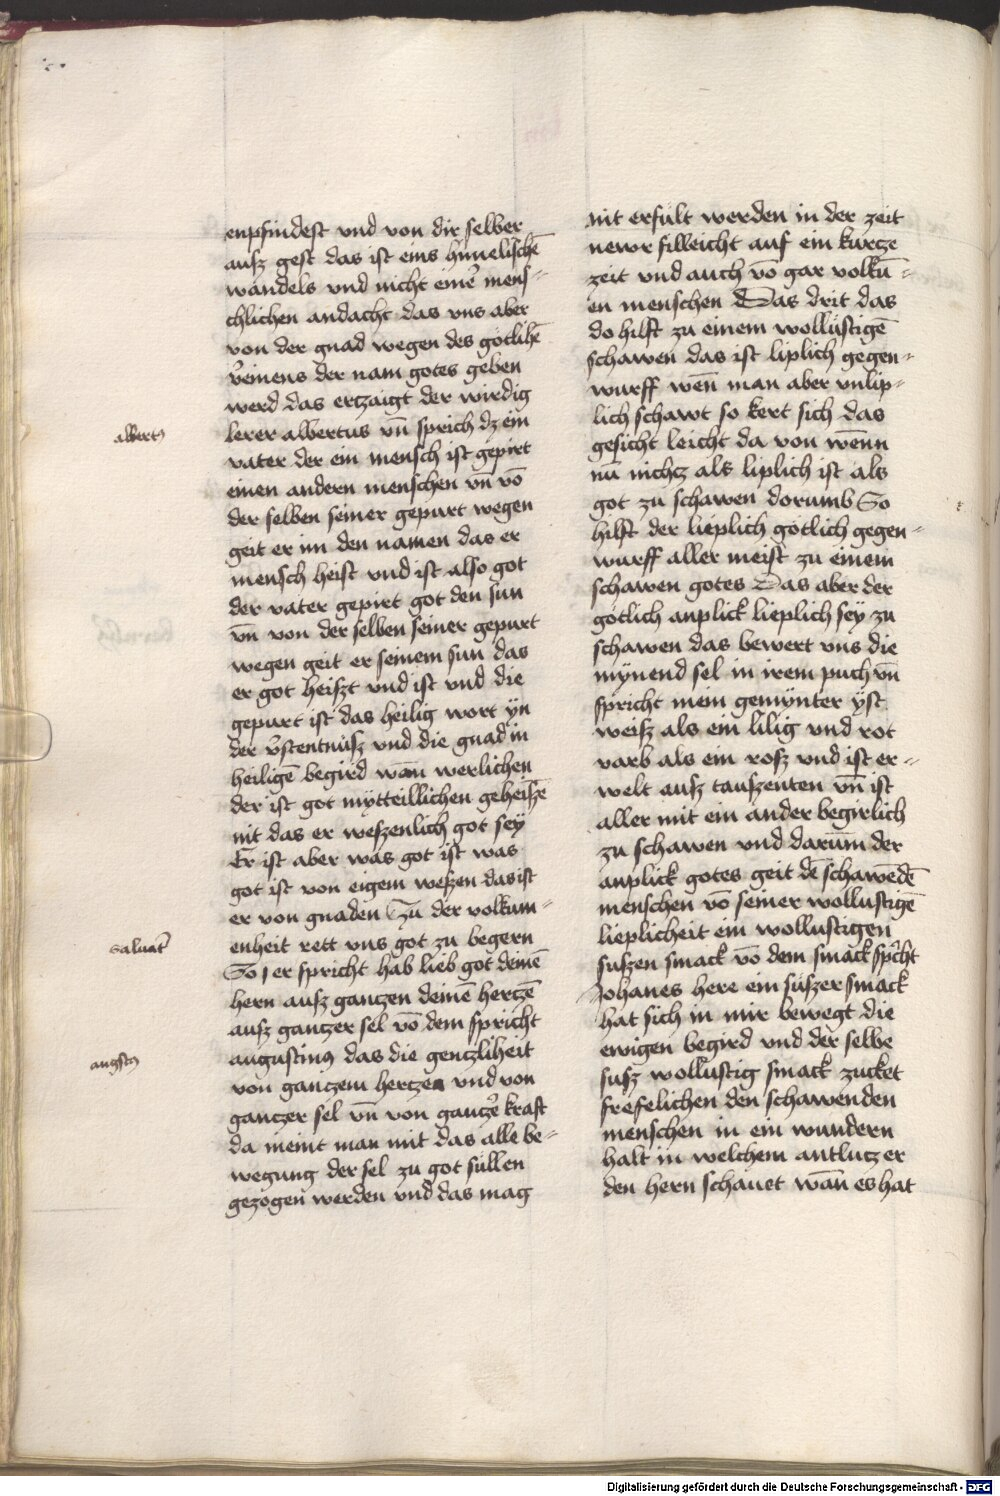 enpfindest vnd von dir selber
ausz gest das ist eins himelischē
wandels vnd nicht einē mens-
chlichen andacht das vns aber
von der gnad wegen des götlihē
v̄einens der nam gotes geben
werd das ertzaigt der wirdig
alberts
lerer albertus vn̄ sprich dz ein
vater der ein mensch ist gepirt
einen andern menschen vn̄ vō
der selben seiner gepurt wegen
geit er im den namen das er
mensch heist vnd ist also got
der vater gepirt got den sun
vn̄ von der selben seiner gepurt
wegen geit er seinem sun das
er got heiszt vnd ist vnd die
gepurt ist das heilig wort yn
der v̄stentnüsz vnd die gnad in
heiligē begird wān werlichen
der ist got mÿtteillichen geheiszē
nit das er weszenlich got sey
Er ist aber was got ist was
got ist von eigem weszen das ist
er von gnaden Zu der volkum-
saluat̄
enheit rett vns got zu begern
So er spricht hab lieb got deinē
hern ausz gantzen deinē hertzē
ausz gantzer sel vō dem spricht
augst9
augustin9 das die gentzliheit
von gantzem hertzen vnd von
gantzer sel vn̄ von gantz̄e kraft
da meint man mit das alle be-
wegung der sel zu got süllen
gezogen werden vnd das mag
nit erfült werden in der zeit
newr filleicht auf ein kurtze
zeit vnd auch vō gar volkū-
en menschen Das drit das
do hilft zu einem wollüstigē
schawen das ist liplich gegen-
wurff wen̄ man aber vnlip-
lich schawt so kert sich das
gesicht leicht da von wēnn
nū nichcz als liplich ist als
got zu schawen dorumb So
hilft der lieplich götlich gegen-
wurff aller meist zu einem
schawen gotes Das aber der
götlich anplick lieplich sey zu
schawen das bewert vns die
mynend sel in irem puch vn̄
spricht mein gemÿnter ÿst
weisz als ein lilig vnd rot
varb als ein rosz vnd ist er-
welt ausz tauszenten vn̄ ist
aller mit ein ander begirlich
zu schawen vnd darūm der
anplick gotes geit dē schawēdē
menschen vō seiner wollustigē
lieplicheit ein wollustigen
suszen smack vō dem smack sp̄cht
Johanes here ein süszer smack
hat sich in mir bewegt die
ewigen begird vnd der selbe
susz wollustig smack zucket
frefelichen den schawenden
menschen in ein wundern
halt in welchem antlutz er
den hern schauet wān es hat
Digitalisierung gefördert durch die Deutsche Forschungsgemeinschaft - DFG